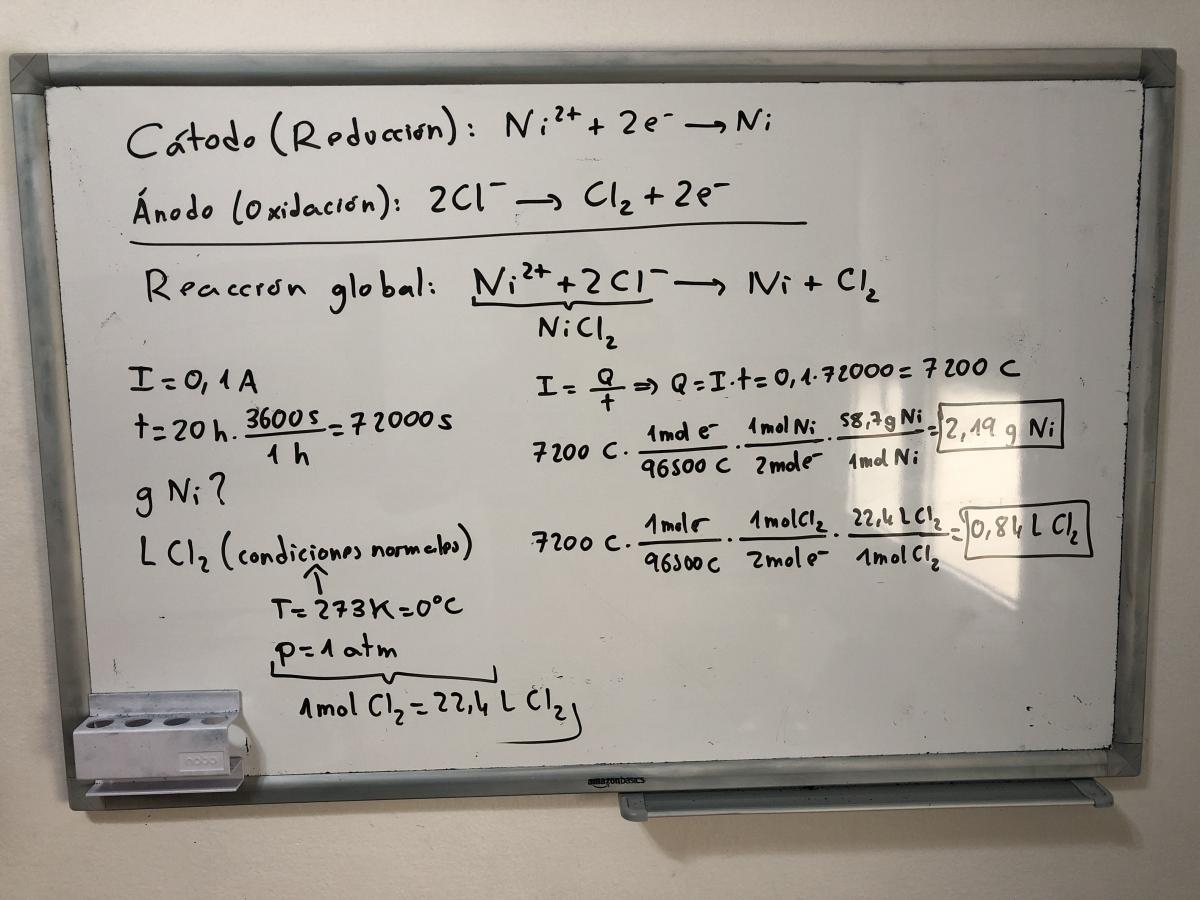 Cátodo (Reducción): Ni²⁺ + 2e⁻ → Ni
Ánodo (Oxidación): 2Cl⁻ → Cl₂ + 2e⁻
Reacción global: Ni²⁺ + 2Cl⁻ → Ni + Cl₂
NiCl₂
I = 0,1A
t = 20h · 3600s / 1h = 72000s
g Ni?
L Cl₂ (condiciones normales)
↑
T = 273K = 0°C
p = 1 atm
1mol Cl₂ = 22,4 L Cl₂
I = Q / t ⇒ Q = I·t = 0,1·72000 = 7200 C
7200 C · 1mol e⁻ / 96500 C · 1mol Ni / 2mol e⁻ · 58,7g Ni / 1mol Ni = 2,19 g Ni
7200 C · 1mol e⁻ / 96500 C · 1mol Cl₂ / 2mol e⁻ · 22,4 L Cl₂ / 1mol Cl₂ = 0,84 L Cl₂
nobo
amazonbasics